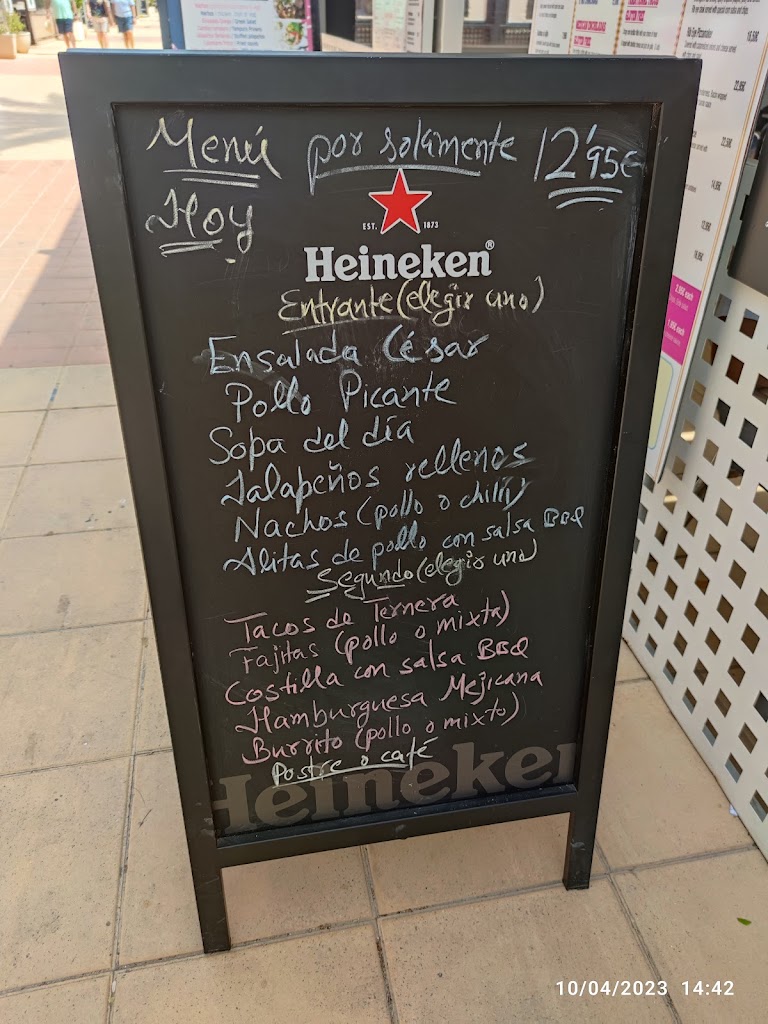 Menú por solamente 12'95€
Hoy
EST. 1873
Heineken®
Entrante (elegir uno)
Ensalada César
Pollo Picante
Sopa del día
Jalapeños rellenos
Nachos (pollo o chili)
Alitas de pollo con salsa BBQ
Segundo (elegir uno)
Tacos de Ternera
Fajitas (pollo o mixta)
Costilla con salsa BBQ
Hamburguesa Mejicana
Burrito (pollo o mixto)
Postre o café
Heineken
10/04/2023 14:42